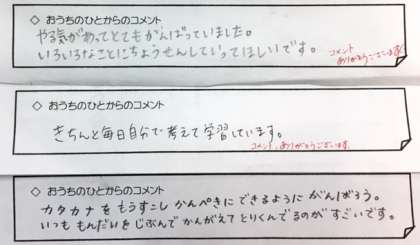 ◇ おうちのひとからのコメント
やる気があってとてもがんばっていました。
いろいろなことにちょうせんしていってほしいです。
コメント
ありがとうございます!
◇ おうちのひとからのコメント
きちんと毎日自分で考えて学習しています。
コメント、ありがとうございます。
◇ おうちのひとからのコメント
カタカナをもうすこしかんぺきにできるようにがんばろう。
いつももんだいをじぶんでかんがえてとりくんでるのがすごいです。